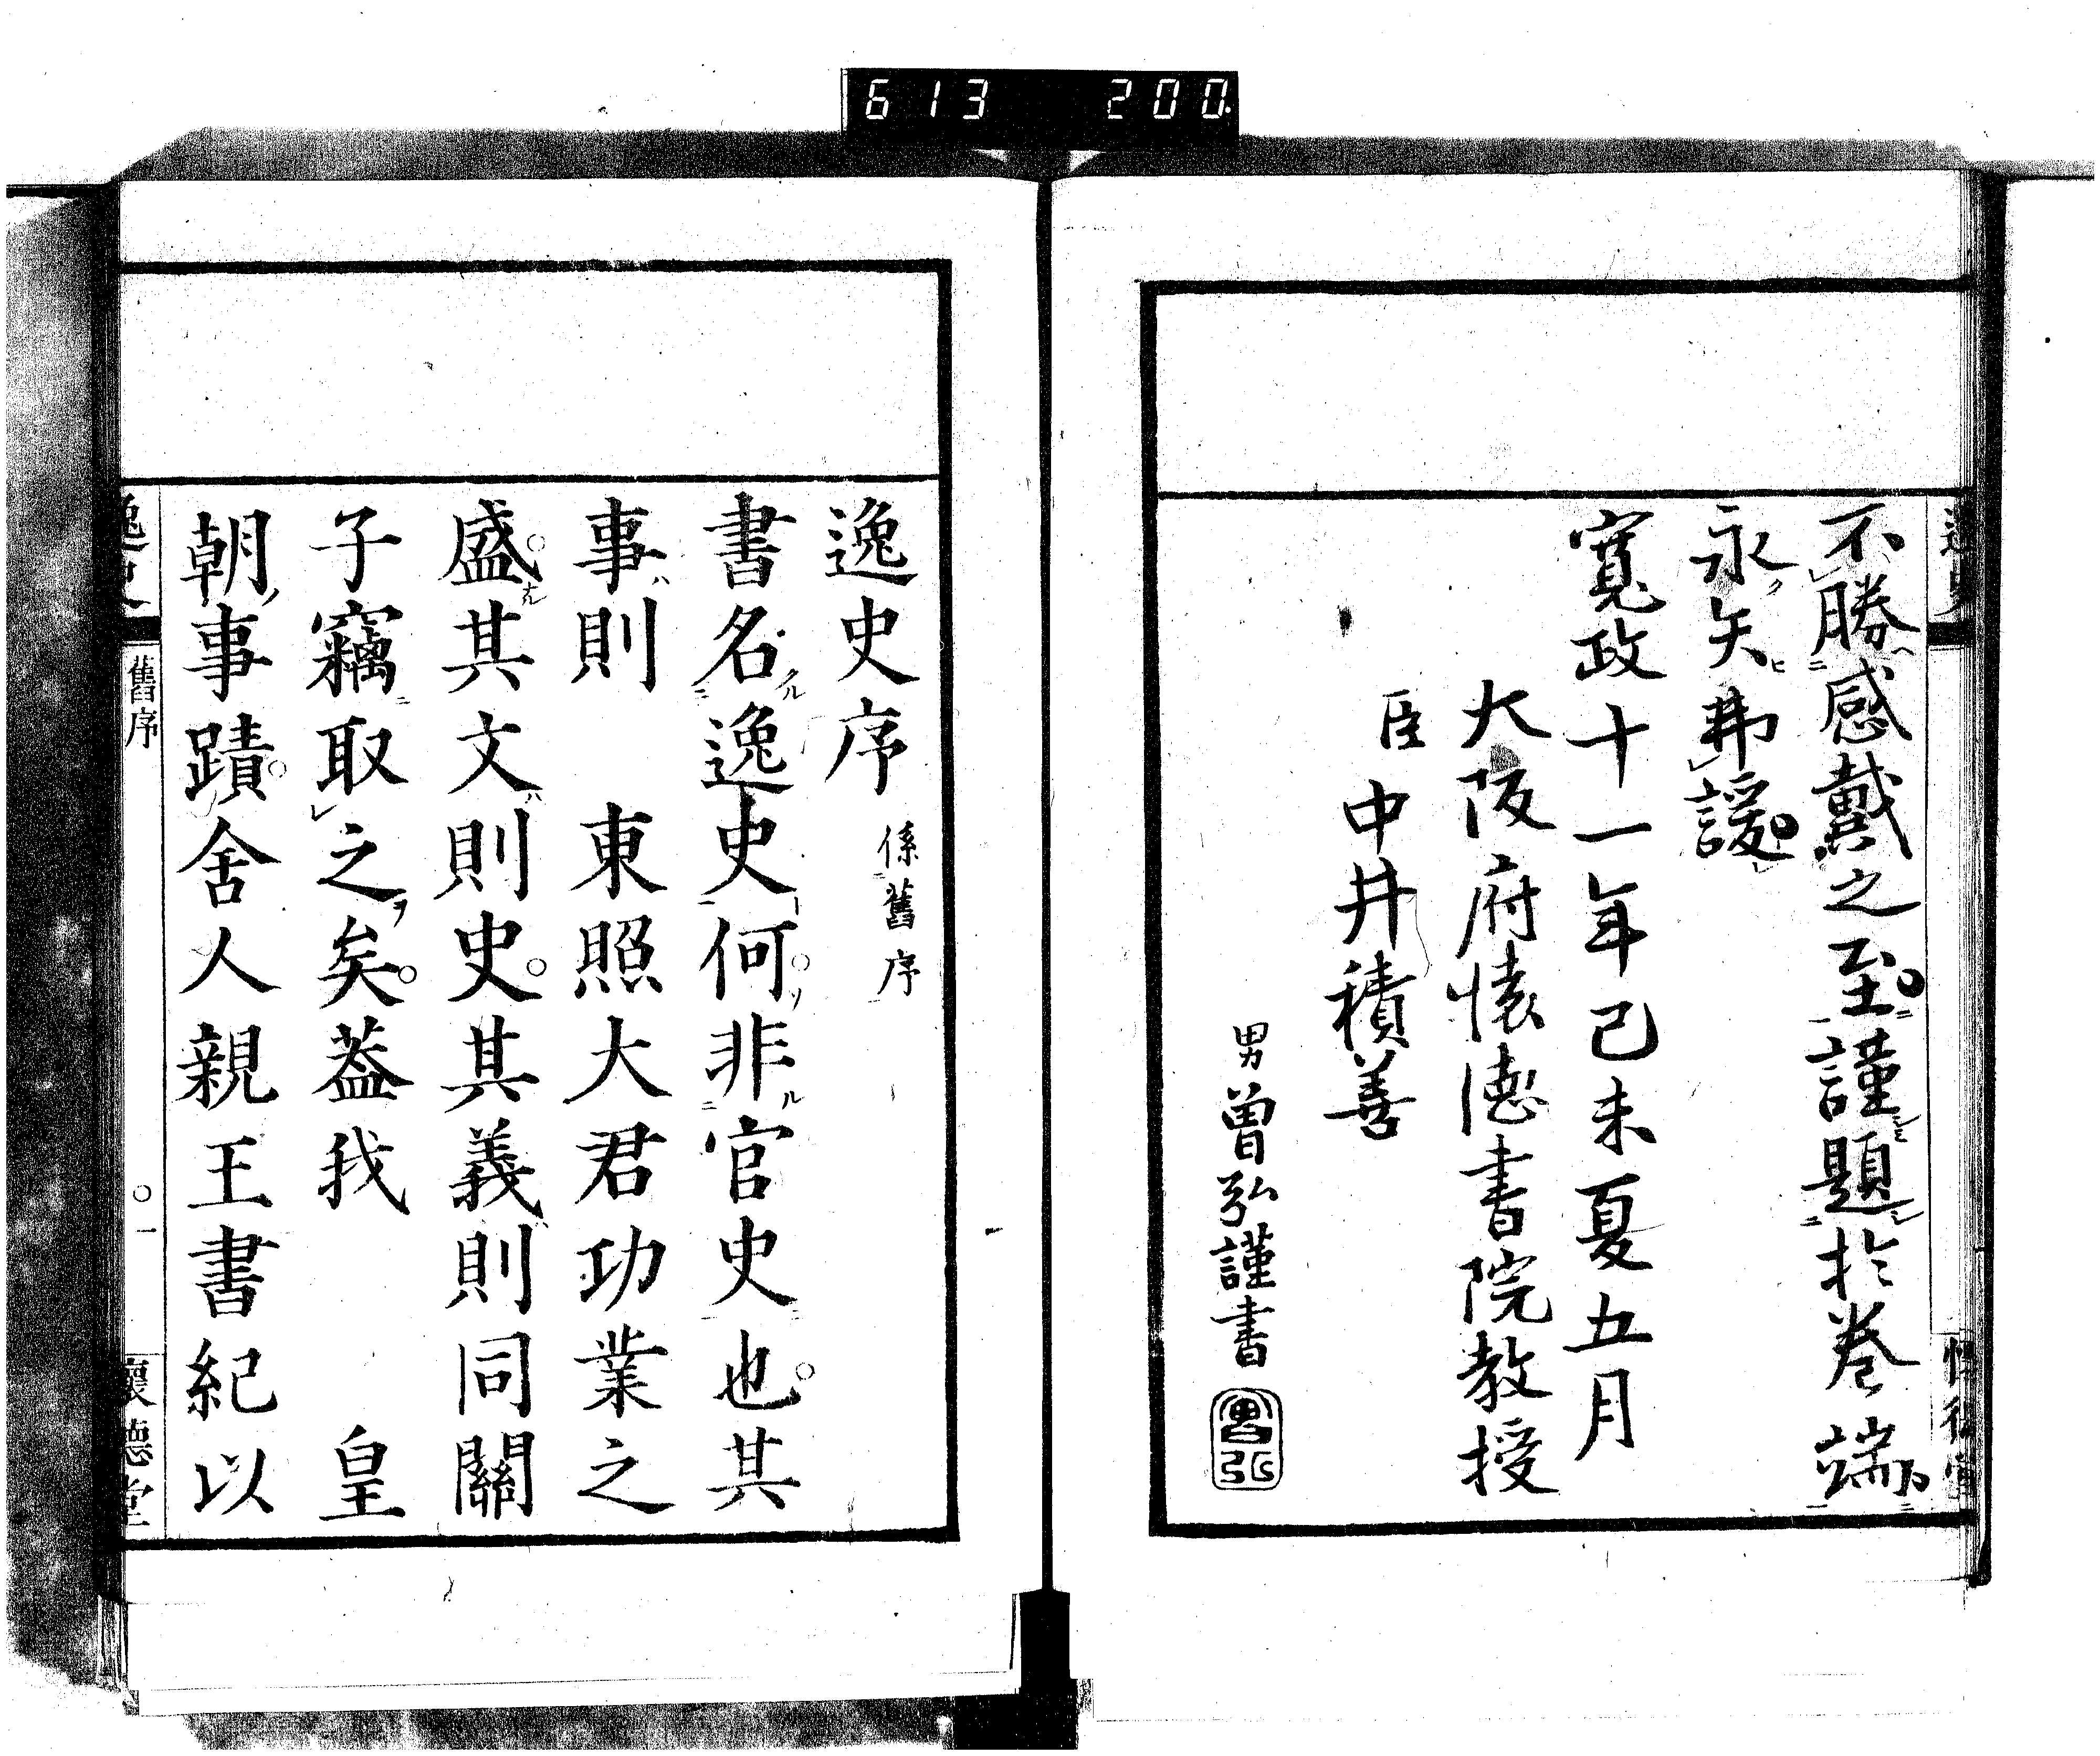 613 200
不勝感戴之至謹題於卷端
永矢弗諼
寬政十一年己未夏五月
大阪府懷德書院教授
臣 中井積善
男曾弘謹書
曾弘
逸史序 係舊序
書名逸史何非官史也其
事則 東照大君功業之
盛其文則史其義則同關
子竊取之矣蓋我 皇
朝事蹟舍人親王書紀以
逸史 舊序 〇一 懷德堂